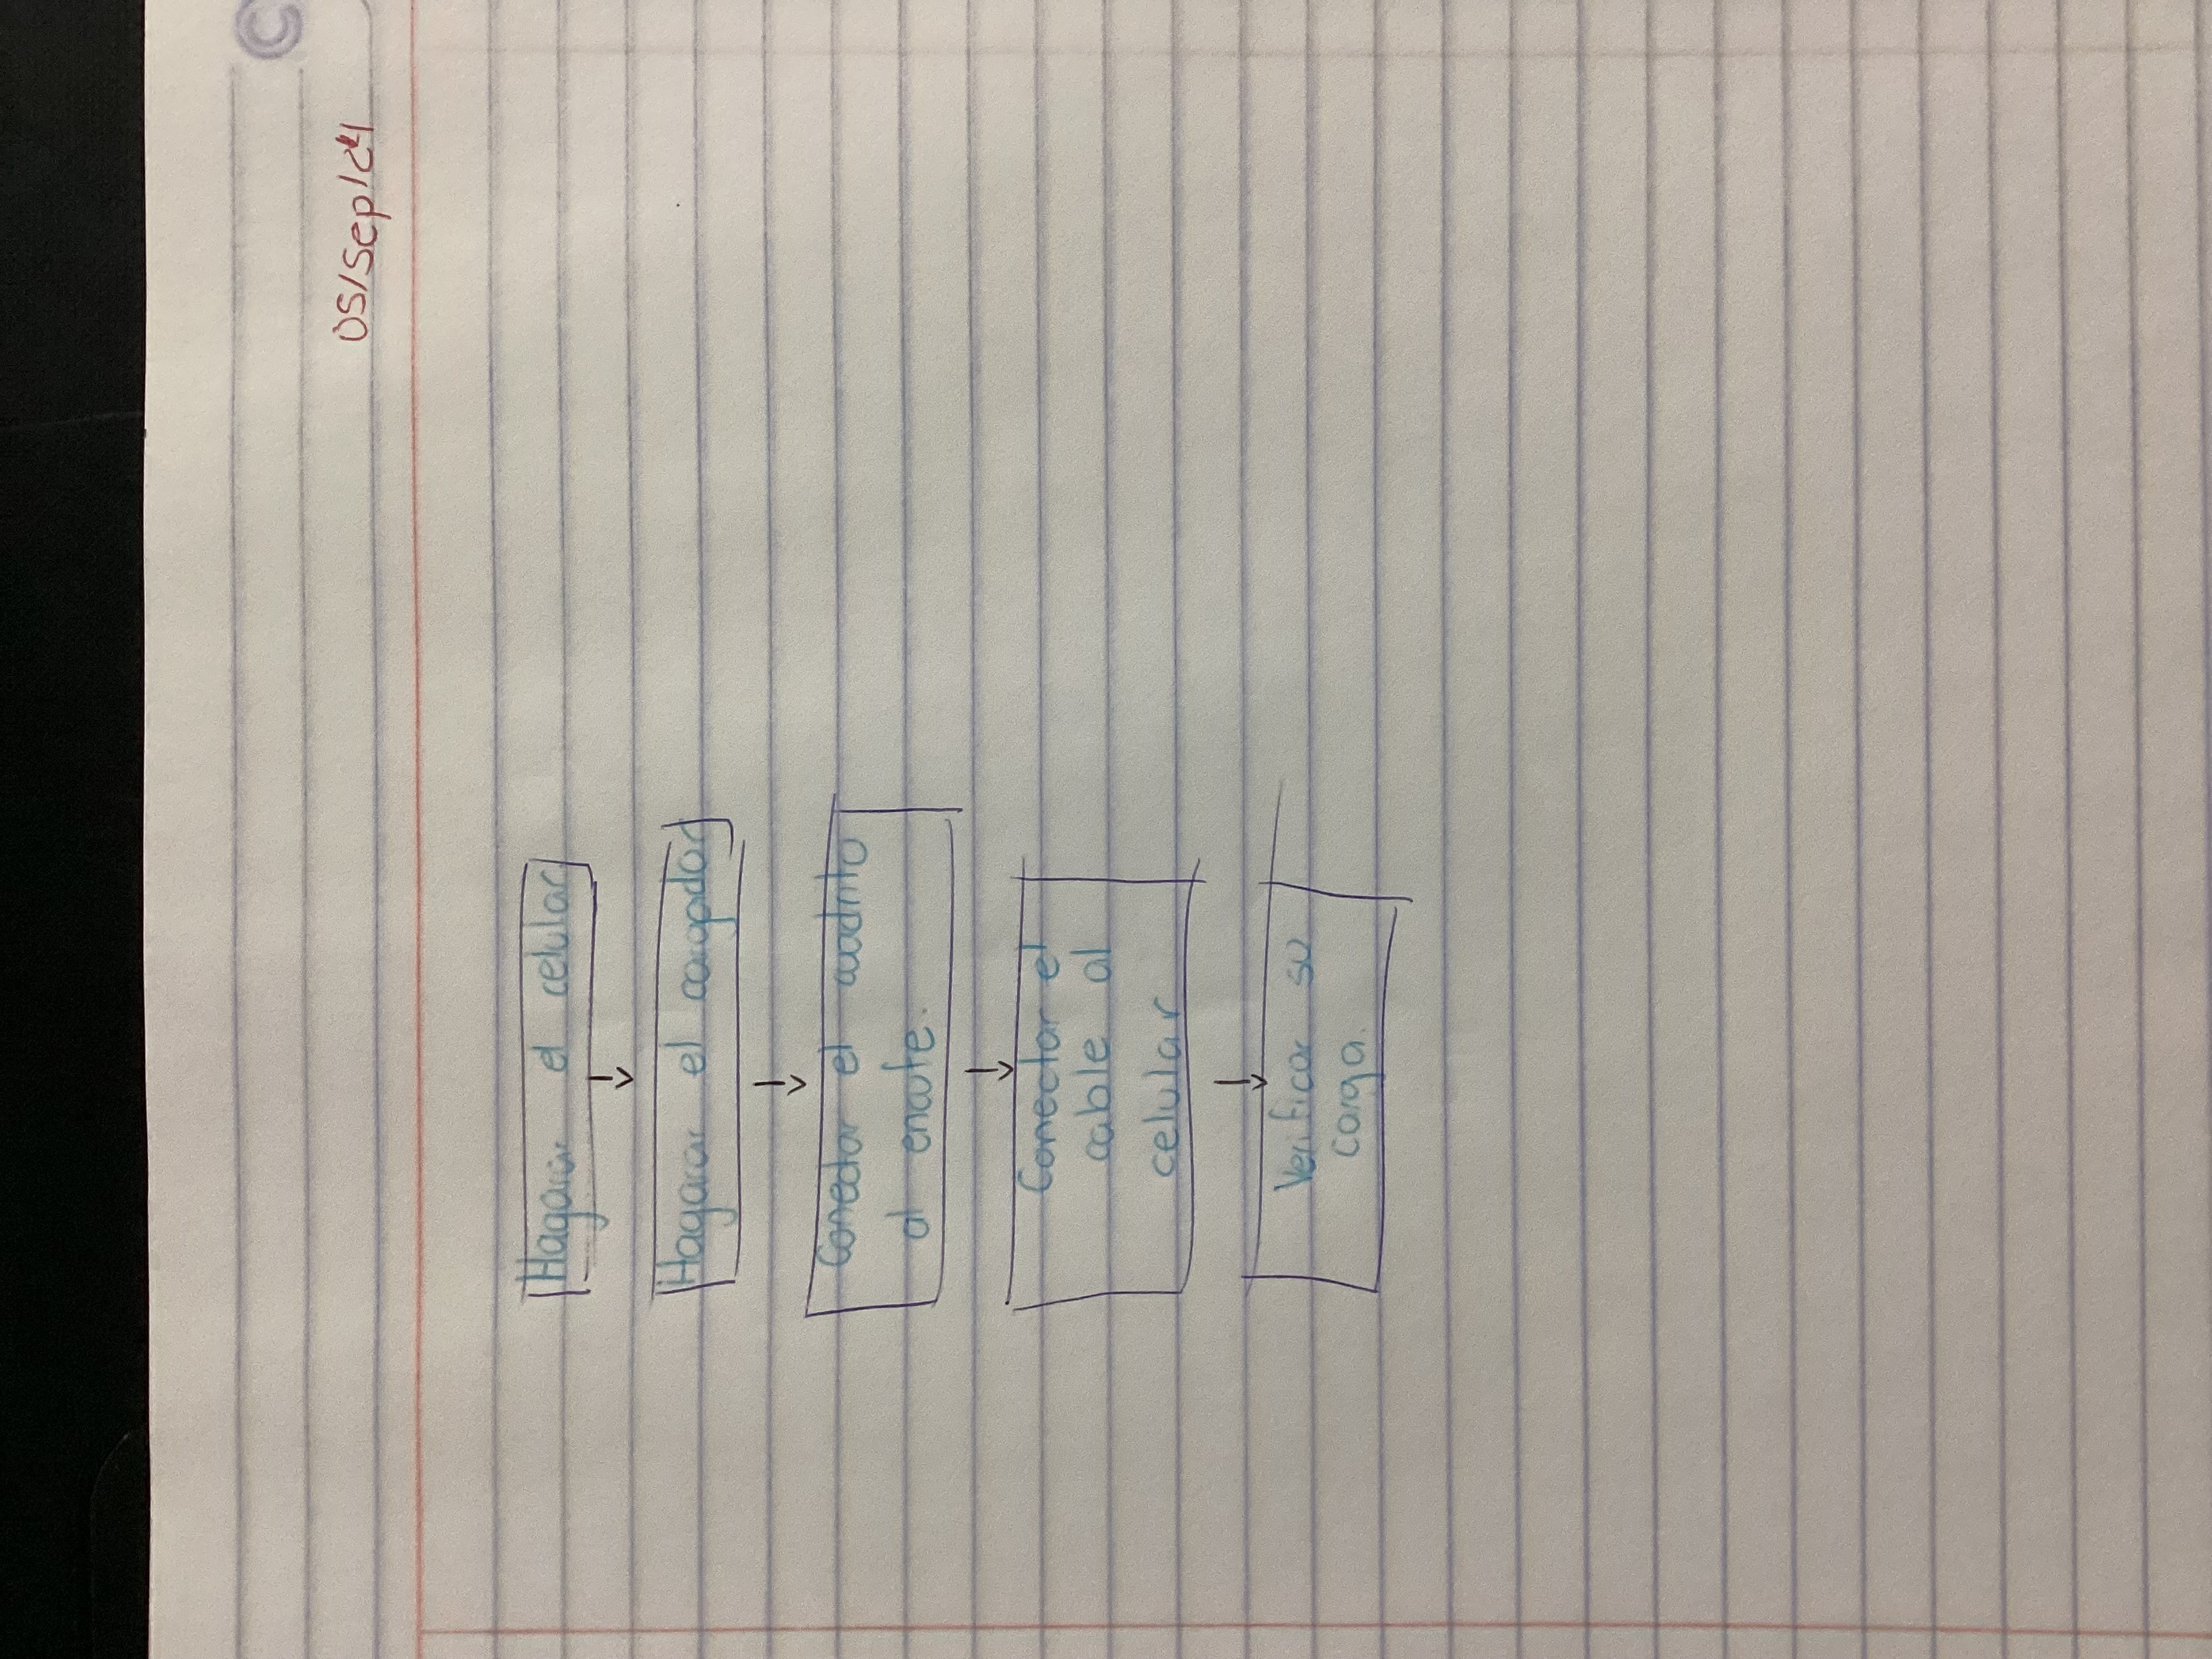 05/Sep/24
Hagarar el celular
Hagarar el cargador
Conectar el cuadrito
al enchufe.
Conectar el
cable al
celular
Verificar su
carga.